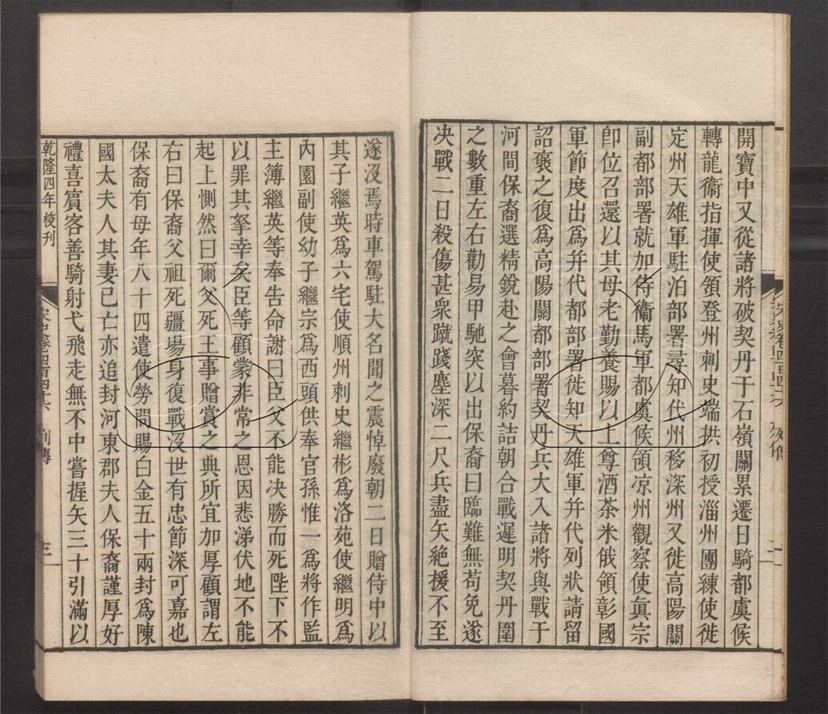 開寶中又從諸將破契丹于石嶺關累遷日騎都虞候
轉龍衞指揮使領登州刺史端拱初授淄州團練使徙
定州天雄軍駐泊部署尋知代州移深州又徙高陽關
副都部署就加侍衞馬軍都虞候領凉州觀察使眞宗
卽位召還以其母老勤養賜以上尊酒茶米俄領彰國
軍節度出爲幷代都部署徙知天雄軍幷代列狀請留
詔褒之復爲高陽關都部署契丹兵大入諸將與戰于
河間保裔選精銳赴之會暮約詰朝合戰遲明契丹圍
之數重左右勸易甲馳突以出保裔曰臨難無苟免遂
决戰二日殺傷甚衆蹴踐塵深二尺兵盡矢絶援不至
遂沒焉時車駕駐大名聞之震悼廢朝二日贈侍中以
其子繼英爲六宅使順州刺史繼彬爲洛苑使繼明爲
內園副使幼子繼宗爲西頭供奉官孫惟一爲將作監
主簿繼英等奉告命謝曰臣父不能决勝而死陛下不
以罪其孥幸矣臣等顧蒙非常之恩因悲涕伏地不能
起上惻然曰爾父死王事贈賞之典所宜加厚顧謂左
右曰保裔父祖死疆埸身復戰沒世有忠節深可嘉也
保裔有母年八十四遣使勞問賜白金五十兩封爲陳
國太夫人其妻已亡亦追封河東郡夫人保裔謹厚好
禮喜賓客善騎射弋飛走無不中嘗握矢三十引滿以
乾隆四年校刊
宋史卷四百四十六 列傳
三